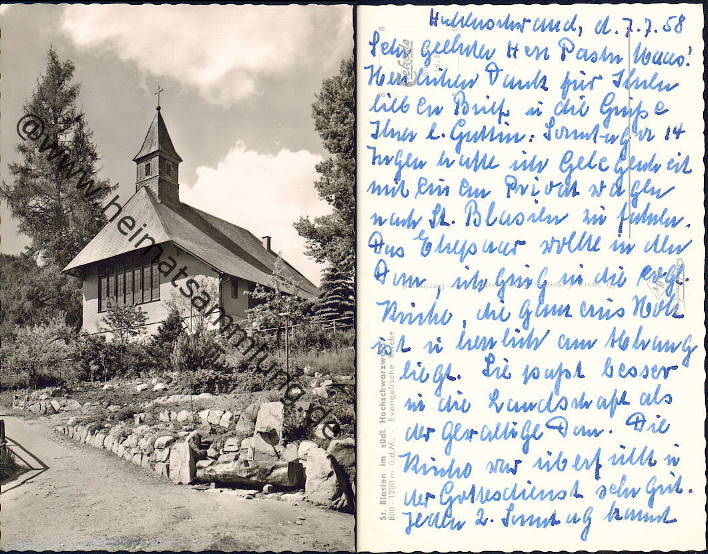 @www.heimatsammlung.de
Häusern-schwand, d. 7.7.58
Sehr geehrter Herr Pastor Maas!
Herzlichen Dank für Ihren
lieben Brief u die Grüße
Ihrer l. Gattin. Sonntag vor 14
Tagen hatte ich Gelegenheit
mit einem Privatwagen
nach St. Blasien zu fahren.
Das Ehepaar wollte in den
Dom, ich ging in die evgl.
Kirche, die ganz aus Holz
ist u herrlich am Abhang
liegt. Sie paßt besser
in die Landschaft als
der gewaltige Dom. Die
Kirche war überfüllt u
der Gottesdienst sehr gut.
Jeden 2. Sonntag kommt
St. Blasien im südl. Hochschwarzwald
800 - 1200 m ü.d.M. Evangelische Kirche